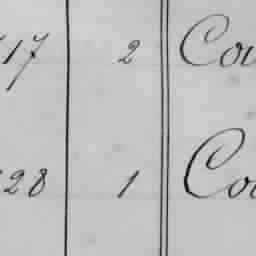 17 2 Cou
28 1 Cou